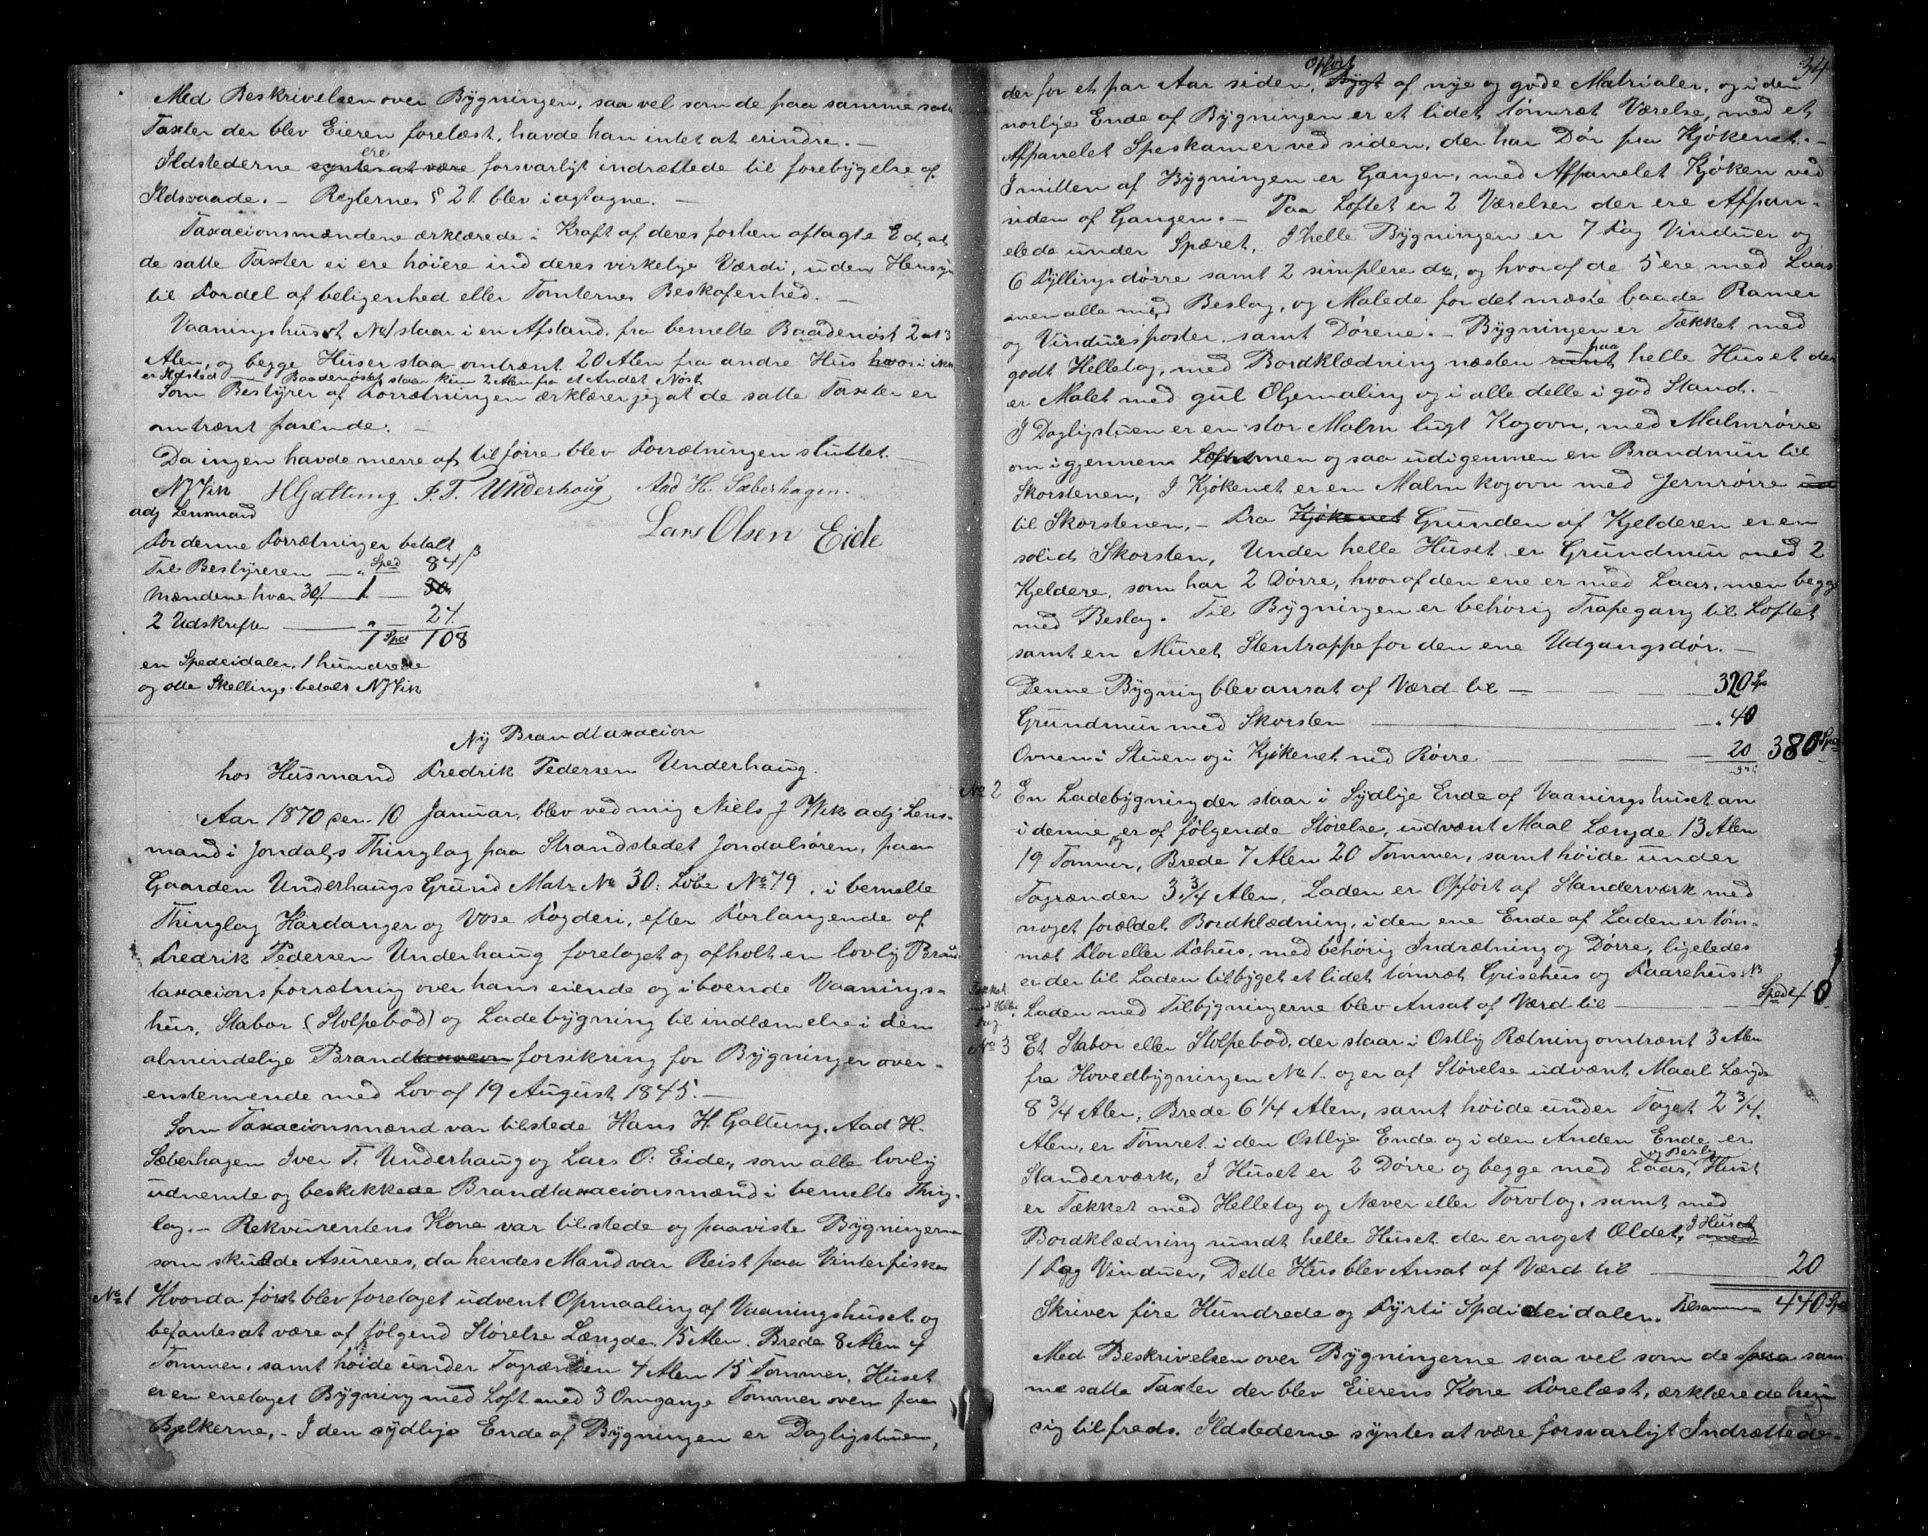 Med Beskrivelsen over Bygningen, saa vel som de paa samme satte
Taxter der blev Eieren forelæst, havde han intet at erindre. —
Ildstederne syntes at være ere forsvarligt indrættede til forebygelse af
Ildsvaade. — Reglernes § 21. blev iagtagne. —
Taxacionsmændene ærklærede i Kraft af deres forhen aflagte Ed, at
de satte Taxter ei ere høiere ind deres virkelige Værdi, uden Hensyn
til Fordel af beligenhed eller Tomternes Beskafenhed. —
Vaaningshuset No 1 staar i en Afstand fra bemelte Baadenøst 2 a 3
Alen, og begge Huser staar omtrent 20 Alen fra andre Hus hvor i ikke
er Ildsted Baadenøstet staar kun 2 Alen fra et Andet Nøst
Som Bestyrer af Forrætningen ærklærer jeg at de satte Taxter er
omtrænt pasende. —
Da ingen havde merre at tilføre blev Forrætningen sluttet —
N J Vik H Galtung I. T. Underhoug Aad H. Sæberhagen.
adj Lensmand
Lars Olsen Eide
For denne Forrætninger betalt
Til Bestyreren — „ Sped 84 β
Mændene hvær 30 β. 1 — 30
2 Udskrifter — „ — 24
1 Sped 108
en Spedeidaler, 1 hundrede
og otte Skellinge betalt N J Vik
Ny Brandtaxacion
hos Husmand Fredrik Pedersen Underhaug.
Aar 1870 den 10 Januar, blev ved mig Niels J Wik adj Lens-
mand i Jondals Thinglag paa Strandstedet Jondalsøren, paa
Gaarden Underhaugs Grund Matr No 30: Løbe No 79, i bemelte
Thinglag Hardanger og Vose Fogderi, efter Forlangende af
Fredrik Pedersen Underhaug foretaget og afholt en lovlig Brand
taxacionsforrætning over hans eiende og iboende Vaanings-
hus, Stabor (Stolpebod) og Ladebygning til indlæmelse i den
almindelige Brandtaxacion forsikring for Bygninger over-
enstemende med Lov af 19 August 1845. —
Som Taxacionsmænd var tilstede Hans H. Galtung, Aad H.
Sæberhagen Iver T. Underhaug og Lars O: Eide, som alle lovlig
udnemte og beskikkede Brandtaxacionsmænd i bemelte Thing-
lag. — Rekvirentens Kone var tilstede og paaviste Bygningerne
som skulde Asureres, da hendes Mand var Reist paa Vinterfisken
No 1 Hvorda først blev foretaget udvent Opmaaling af Vaaningshuset og
befantes at være af følgend Størelse Længde 15 Alen. Brede 8 Alen 4
Tommer, samt høide under Tagrænden 4 Alen 15 Tommer, Huset
er en enetaget Bygning med Loft med 3 Omgange Tommer oven paa
Bjelkerne, - I den sydlige Ende af Bygningen er Dagligstuen,
34
der for et par Aar siden, Bygt Opført af nye og gode Matrialer, og i den
norlige Ende af Bygningen er et lidet tømræt Værelse, med et
Afpanelet Speskamer ved siden, der har Dør fra Kjøkenet. —
I mitten af Bygningen er Gangen, med Afpanelet Kjøken ved
siden af Gangen. — Paa Loftet er 2 Værelser der ere Afpan-
elede under Spæret, I helle Bygningen er 7 Fag Vinduer og
6 Fyllingsdørre samt 2 simplere do, og hvoraf de 5 ere med Laas
men alle med Beslag, og Malede for det mæste baade Ramer
og Vinduesposter samt Dørene. — Bygningen er Tækket med
godt Helletag, med Bordklædning næsten rundt paa helle Huset der
er Malet med gul Oljemaling og i alle delle i god Stand. —
I Dagligstuen er en stor Malm lugt Kogovn, med Malmrørre
om igjennem Loftet men og saa udigenmen en Brandmur til
Skorstenen, I Kjøkenet er en Malm kogovn med Jernrørre ud
til Skorstenen, — Fra Kjøkenet Grunden af Kjelderen er en
solid Skorsten, Under helle Huset er Grundmur med 2
Kjeldere, som har 2 Dørre, hvoraf den ene er med Laas, men begge
med Beslag. Til Bygningen er behørig Trapegang til Loftet
samt en Muret Stentrappe for den ene Udgangsdør. —
Denne Bygning blev ansat af Værd til — 320 Sp
Grundmur med Skorsten — „ 40
Ovnen i Stuen og i Kjøkenet med Rørre — 20 380 Sped
No 2 En Ladebygning der staar i Sydlige Ende af Vaaningshuset an
i denne og er af følgende Størelse, udvænt Maal Længde 13 Alen
19 Tommer, Brede 7 Alen 20 Tommer, samt høide under
Tagrænden 3 3/4 Alen, Laden er Opført af Standerværk med
noget forældet Bordklædning, i den ene Ende af Laden er tøm-
ræt Flor eller Fæhus, med behørig Indrætning og Dørre, ligeledes
er der til Laden tilbyget et lidet tømræt Grisehus og Faarehus
Tækket med Helle tag. Laden med Tilbygningerne blev Ansat af Værd til — Sped 40
No 3 Et Stabor eller Stolpebod, der staar i Ostlig Rætning omtrænt 3 Alen
fra Hovedbygningen No 1. og er af Størelse udvænt Maal Længde
8 3/4 Alen, Brede 6 1/4 Alen, samt høide under Taget 2 3/4
Alen, er Tømret i den Ostlige Ende og i den Anden Ende er
Standerværk, I Huset er 2 Dørre og begge med Laas, og Beslag Huset
er Tækket med Helletag og Næver eller Torvtag, samt med
Bordklædning rundt helle Huset der er noget Ældet, med I Huset
1 Fag Vinduer, Dette Hus blev Ansat af Værd til — 20
Skriver fire Hundrede og Fyrti Spedeidaler. Tilsammen 440 Sped
Med Beskrivelsen over Bygningerne saa vel som de paa sam-
me satte Taxter der blev Eierens Kone Forelæst, ærklærede hun
sig tilfreds. Ildstederne syntes at være forsvarligt Indrættede-